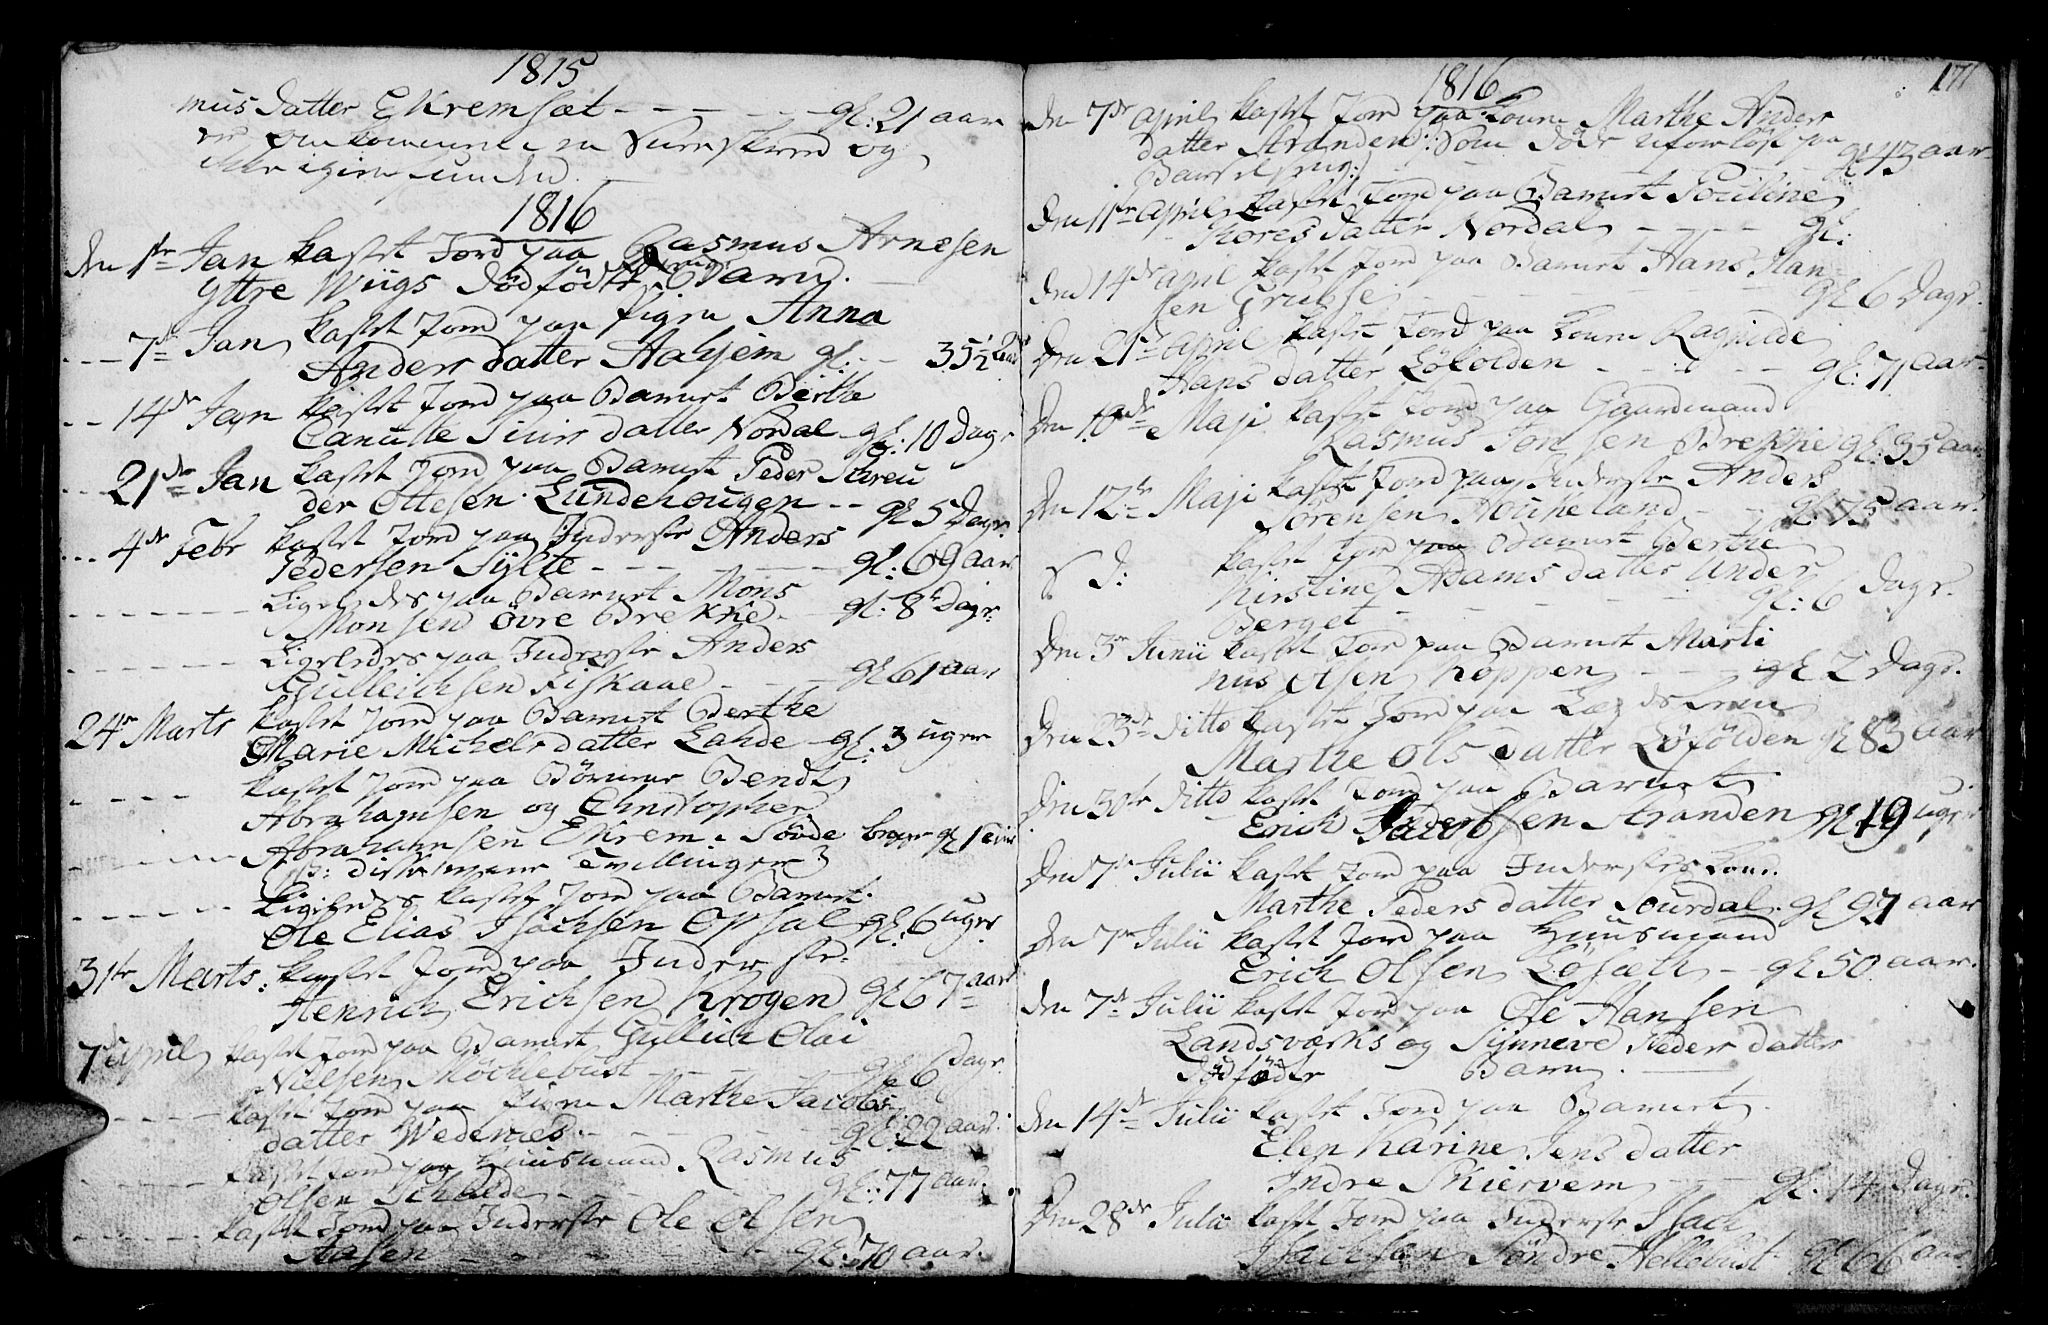 1815
mus datter Ekremsæt - - - - gl: 21 aar
er omkommen en Sneeskred og
ikke igien funden.
1816
den 1ste Jan kastet Jord paa Rasmus Arnesen
Yttre Wiigs dødfödte Barn.
- - - 7de Jan kastet Jord paa Pigen Anna
Anders datter Aahjem gl: - - 35 1/2 aar
- - 14de Jan kastet Jord paa Barnet Birthe
Canutte Siurs datter Nordal gl: 10 Dage
- - - 21de Jan kastet Jord paa Barnet Peder Schreu
der Ottesen Lundehougen - - gl 5 Dage
- - - 4de Febr kastet Jord paa Inderste Anders
Pedersen Sylte - - - - gl: 69 aar
- - - - Ligeledes paa Barnet Mons
Monsen Øvre Brekke - gl: 8te Dage
- - - - Ligeledes paa Inderste Anders
Gulleichsen Fiskaae - - - gl 61 aar
24de Marts kastet Jord paa Barnet Berthe
Marie Michels datter Lahde gl: 3 uger
- - - - kastet Jord paa Börnene Bendt
Abrahamsen og Christopher
Abrahamsen Ekrem i Søvde begge gl 1 
(: disse vare Tvillinger)
- - - - Ligeledes kastet Jord paa Barnet
Ole Elias Isachsen Opsal gl: 6 uger
31te Marts: kastet Jord paa Inderste
Henrich Erichsen Krogen gl 67 aar
7de April kastet Jord paa Barnet Gullich Olai
Nielsen Mochlebust - - gl 6 Dage
- - - - kastet Jord paa Pigen Marthe Jacobs
datter Wedenæs - - - - gl: 22 aar
- - - - kastet Jord paa Huusmand Rasmus
Olsen Schaede - - - - gl: 77 aar
- - - - kastet Jord paa Inderste Ole Olsen
Aasen - - - - gl: 70 aar.
171
1816
den 7de April kastet Jord paa Konen Marthe Anders
datter Stranden (: Som döde uforløst paa
Barsel seng:) gl 43 aar
den 11te April kastet Jord paa Barnet Pouline
Kores datter Nordal - - - - gl:
den 14de April kastet Jord paa Barnet Hans Han
sen Grubse - - - - gl 6 Dage.
den 21de April kastet Jord paa Konen Ragnilde
Hans datter Løfolden - - - - gl: 71 aar
den 10de Maji kastet Jord paa Gaardmand
Rasmus Jonsen Brekke gl: 35 aar
den 12te Maji kastet Jord paa Inderste Anders
Sörensen Houkeland - - gl: 75 aar
S D: kastet Jord paa Barnet Berthe
Kirstine Adams datter Under
Berget - - - - gl: 6 Dage.
den 3de Junii kastet Jord paa Barnet Marti
nus Olsen Koppen - - - gl 2 Dage.
den 23de Ditto kastet Jord paa Lægdslem
Marthe Ols datter Löfölden gl 83 aar
den 30te Ditto kastet Jord paa Barnet
Erich Pedersen Stranden gl 19 uger
den 7de Julii kastet Jord paa Inderstes Kone
Marthe Peders datter Sourdal gl 97 aar
den 7de Julii kastet Jord paa Huusmand
Erich Olsen Löseth - gl 50 aar.
den 7de Julii kastet Jord paa Ole Hansen
Landsværks og Synneve Peders datter
dödföder Barn.
den 14de Julii kastet Jord paa Barnet
Elen Karine Jens datter
Indre Skiervem - - gl. 14 Dage.
den 28de Julii kastet Jord paa Inderste Isach
Isachsen Söndre Hellebust gl 66 aar